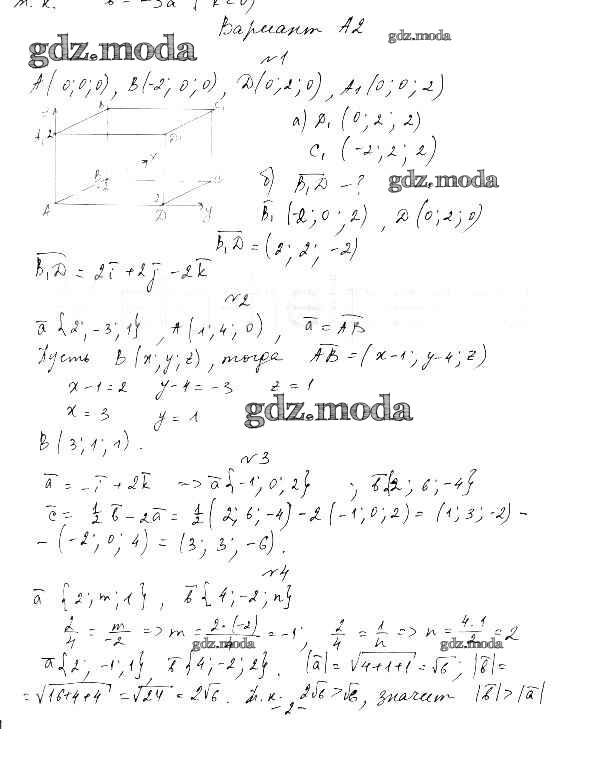 т. к. b = -3a (k<0)
Вариант А2
gdz.moda
gdz.moda
№1
A(0;0;0), B(-2;0;0), D(0;2;0), A₁(0;0;2)
а) D₁ (0; 2; 2)
C₁ (-2; 2; 2)
б) B₁D - ?
gdz.moda
B₁ (-2; 0; 2), D(0; 2; 0)
B₁D = (2; 2; -2)
B₁D = 2i + 2j - 2k
№2
a {2; -3; 1}, A(1; 4; 0), a = AB
Пусть B(x; y; z), тогда AB = (x-1; y-4; z)
x-1=2 y-4=-3 z=1
x = 3 y = 1
gdz.moda
B(3; 1; 1).
№3
a = -i + 2k => a{-1; 0; 2} ; b{2; 6; -4}
c = 1/2 b - 2a = 1/2 (2; 6; -4) - 2(-1; 0; 2) = (1; 3; -2) -
- (-2; 0; 4) = (3; 3; -6).
№4
a {2; m; 1}, b{4; -2; n}
2/4 = m/-2 => m = 2·(-2)/4 = -1; 2/4 = 1/n => n = 4·1/2 = 2
gdz.moda
gdz.moda
a{2; -1; 1}, b{4; -2; 2}. |a| = √4+1+1 = √6; |b| =
= √16+4+4 = √24 = 2√6. Т.к. 2√6 > √6, значит |b| > |a|
- 2 -